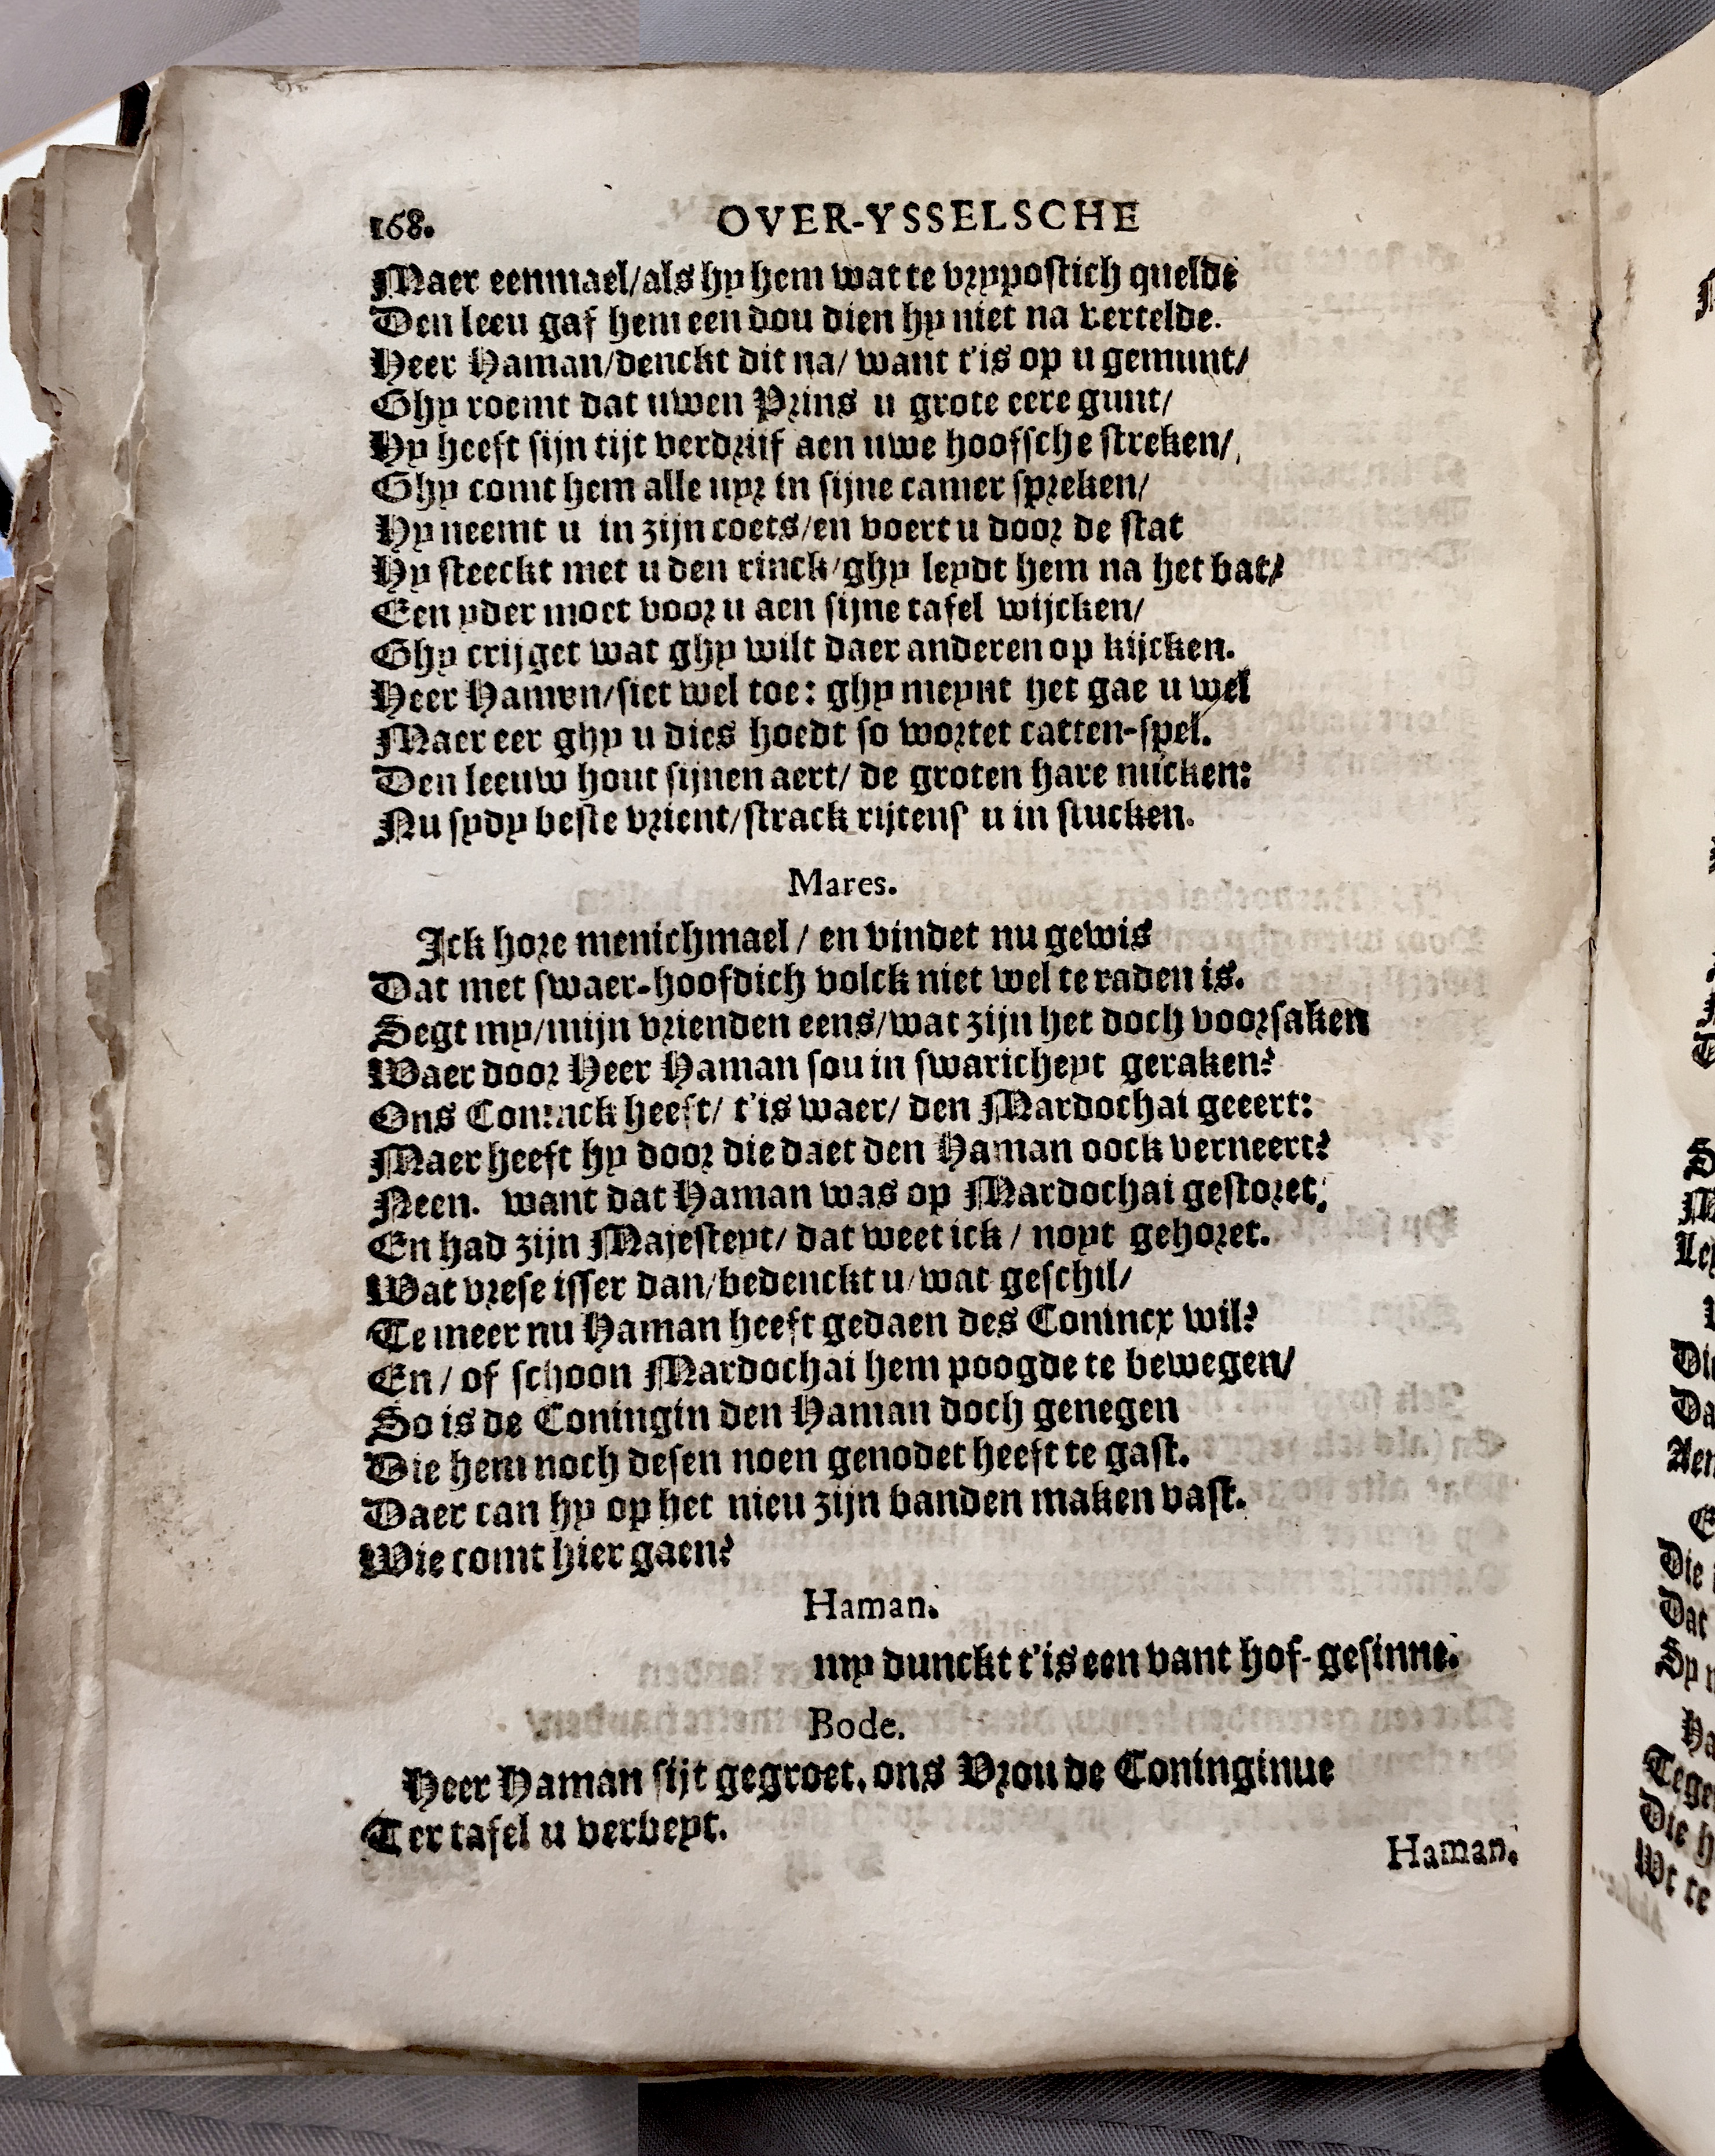 168. OVER-YSSELSCHE
Maer eenmael/als hy hem wat te vrypostich quelde
Den leeu gaf hem een dou dien hy niet na vertelde.
Heer Haman/denckt dit na/ want t'is op u gemunt/
Ghy roemt dat uwen Prins u grote eere gunt/
Hy heeft sijn tijt verdrijf aen uwe hoofsche streken/
Ghy comt hem alle uyr in sijne camer spreken/
Hy neemt u in zijn coets/en voert u door de stat
Hy steeckt met u den rinck/ghy leydt hem na het bat/
Een yder moet voor u aen sijne tafel wijcken/
Ghy crijget wat ghy wilt daer anderen op kijcken.
Heer Hamen/siet wel toe: ghy meynt het gae u wel
Maer eer ghy u dies hoedt so wortet catten-spel.
Den leeuw hout sijnen aert/ de groten hare nucken:
Nu sydy beste vrient/strack rijtens' u in stucken.
Mares.
Ick hore menichmael / en vindet nu gewis
Dat met swaer-hoofdich volck niet wel te raden is.
Segt my/mijn vrienden eens/wat zijn het doch voorsaken
Waer door Heer Haman sou in swaricheyt geraken?
Ons Coninck heeft/ t'is waer/ den Mardochai geeert:
Maer heeft hy door die daet den Haman oock verneert?
Neen. want dat Haman was op Mardochai gestoret,
En had zijn Majesteyt/ dat weet ick / noyt gehoret.
Wat vrese isser dan/bedenckt u/wat geschil/
Te meer nu Haman heeft gedaen des Conincx wil?
En/ of schoon Mardochai hem poogde te bewegen/
So is de Coningin den Haman doch genegen
Die hem noch desen noen genodet heeft te gast.
Daer can hy op het nieu zijn banden maken vast.
Wie comt hier gaen?
Haman.
my dunckt t'is een vant hof-gesinne.
Bode.
Heer Haman sijt gegroet, ons Vrou de Coninginue
Ter tafel u verbeyt.
Haman.